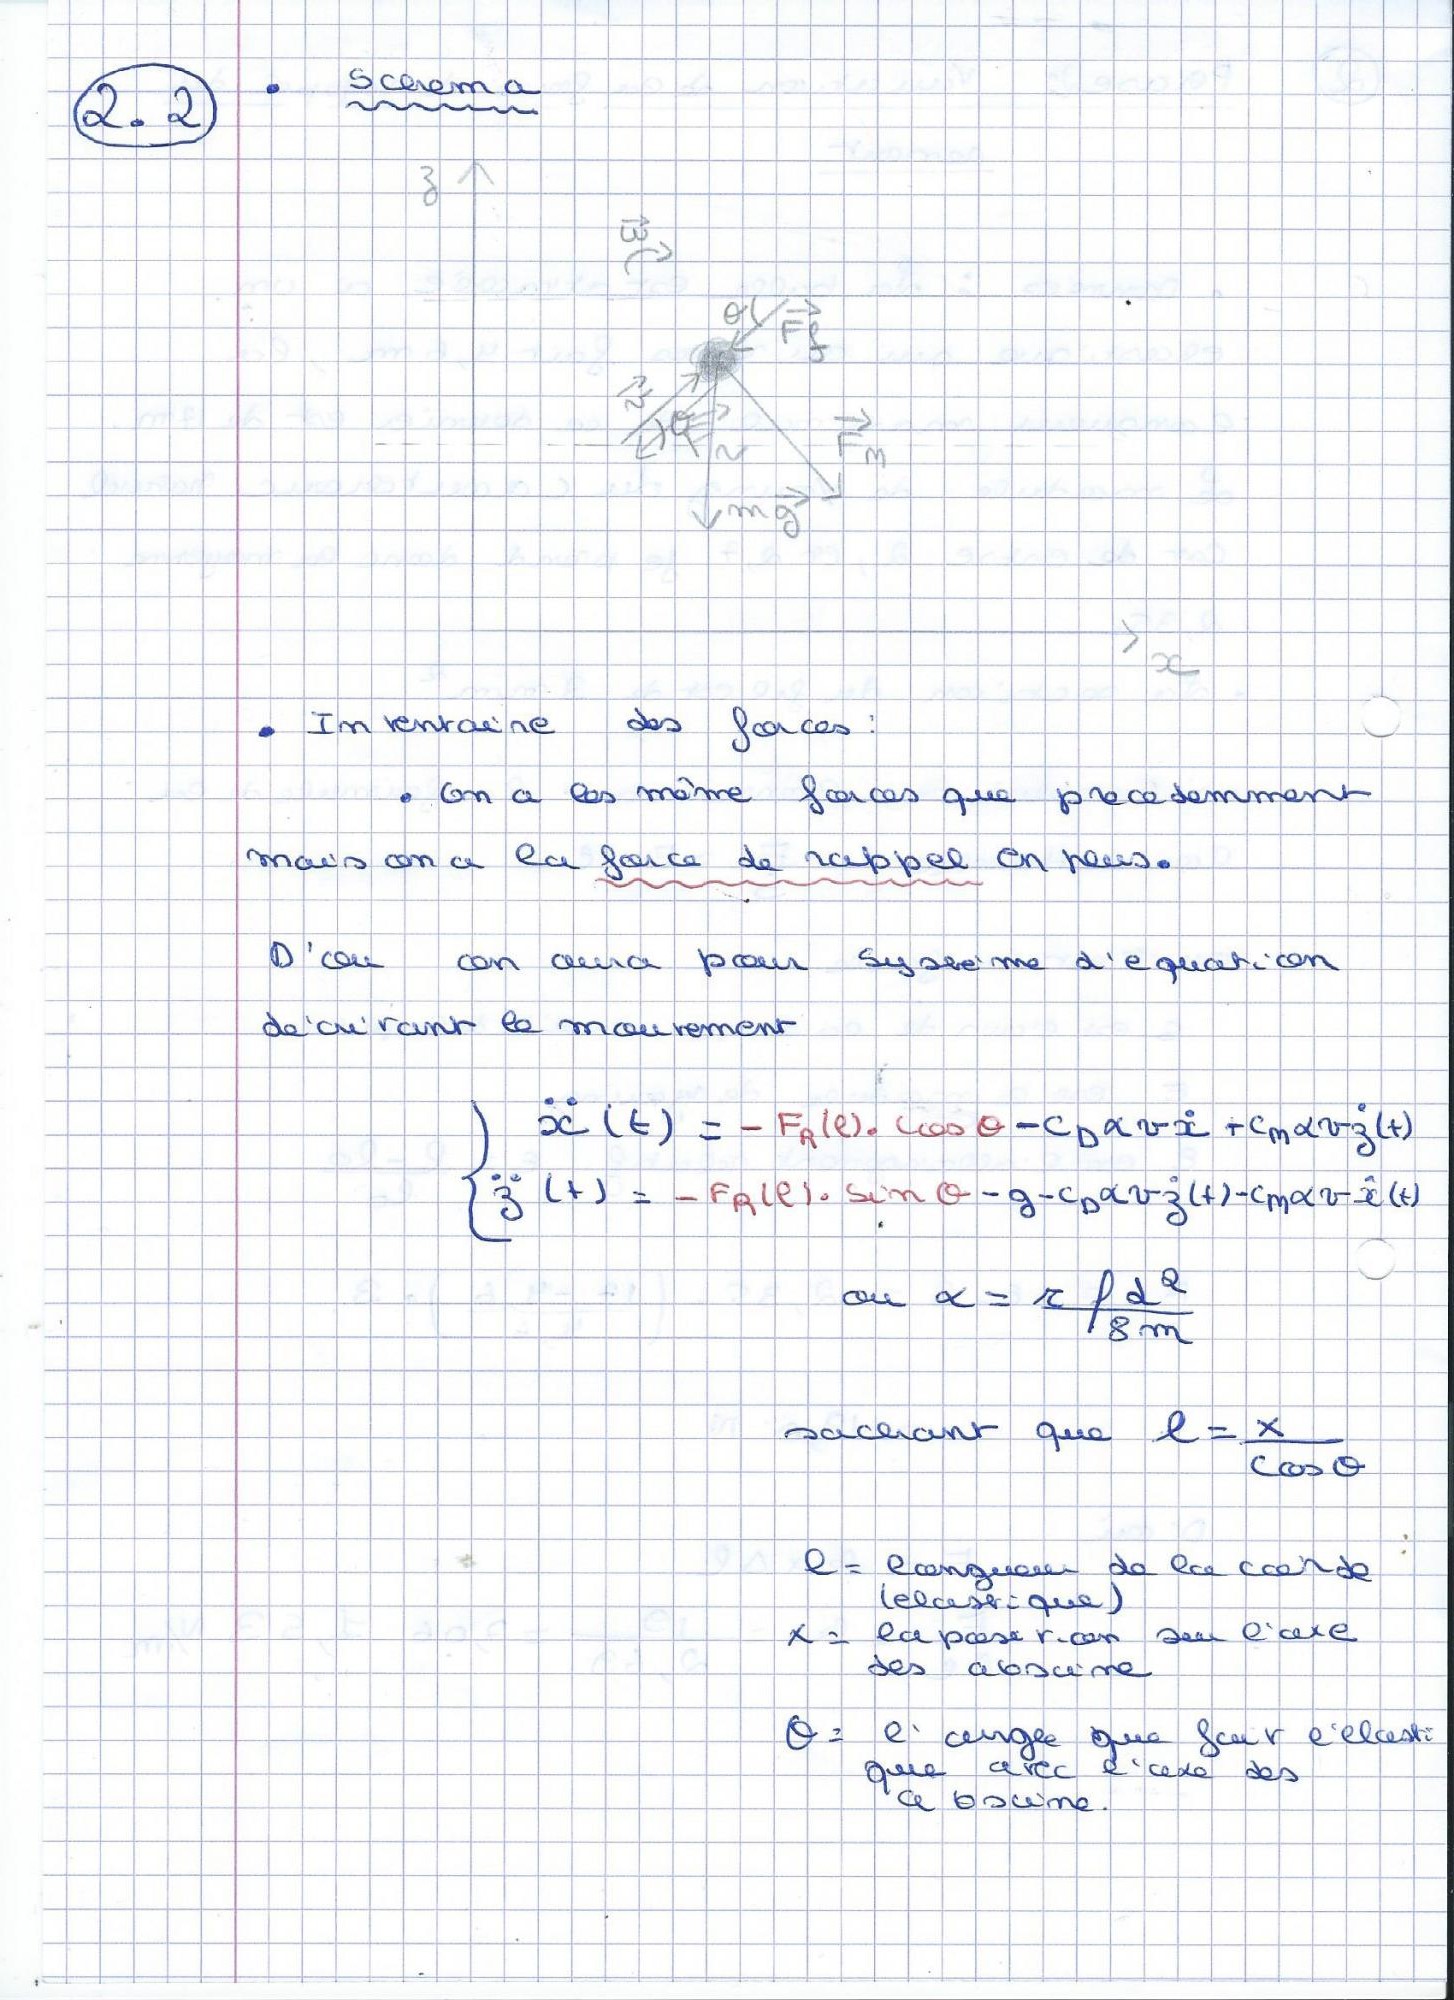 2.2
• Schema
z
w
θ
F_f
v
θ
F_r
F_M
mg
x
• Inventaire des forces :
• on a les même forces que precedemment
mais on a la force de rappel en plus.
D'ou on aura pour système d'equation
décrivant le mouvement
ẍ(t) = -F_R(l). cos θ - C_D α v ẋ + C_M α v ż(t)
z̈(t) = -F_R(l). sin θ - g - C_D α v ż(t) - C_M α v ẋ(t)
ou α = π ρ d² / 8m
sachant que l = x / cos θ
l = longueur de la corde
(elastique)
x = la position sur l'axe
des abscisse
θ = l'angle que fait l'élasti
que avec l'axe des
abscisse.